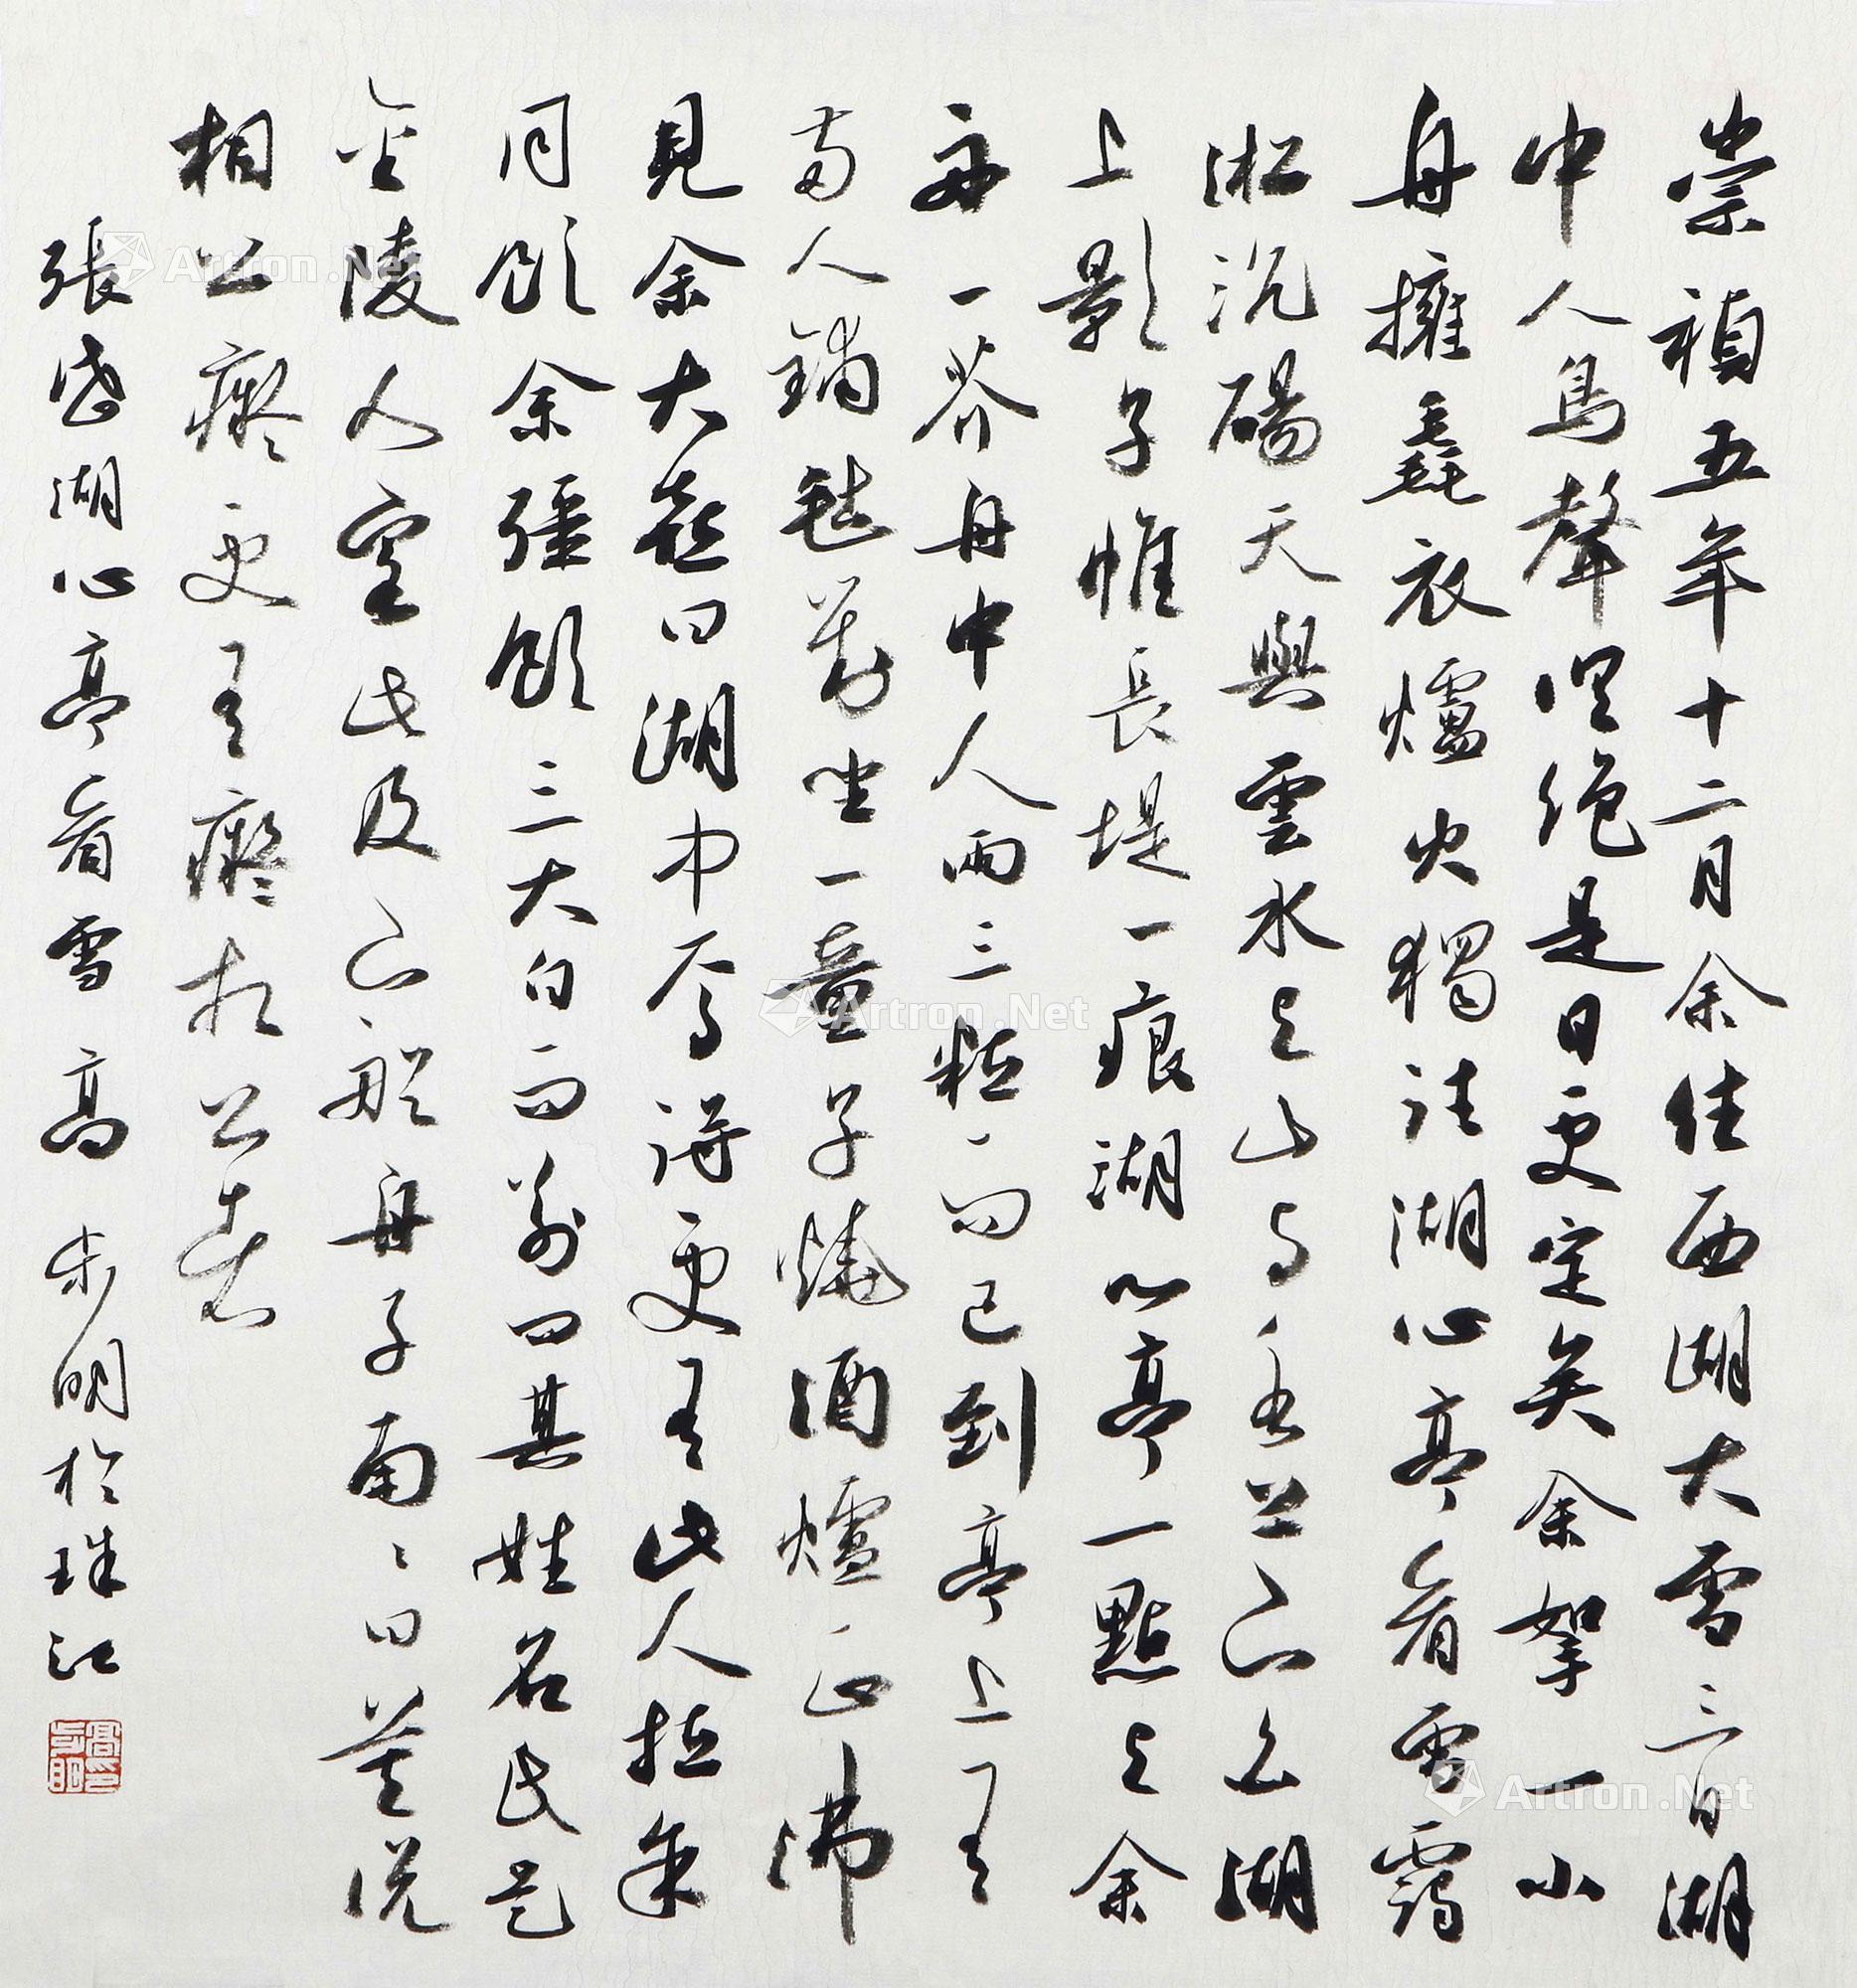 崇禎五年十二月余住西湖大雪三日湖
中人鳥聲俱絕是日更定矣余拏一小
舟擁毳衣爐火獨往湖心亭看雪霧
淞沆碭天與雲水与山与水上下一白湖
上影子惟長堤一痕湖心亭一點与余
舟一芥舟中人兩三粒而已到亭上有
兩人鋪氈對坐一童子燒酒爐正沸
見余大喜曰湖中焉得更有此人拉余
同飲余強飲三大白而別問其姓名氏是
金陵人客此及下船舟子喃喃曰莫說
相公癡更有癡相公者
張岱湖心亭看雪 高步明於珠江
Artron.Net
Artron.Net
Artron.Net